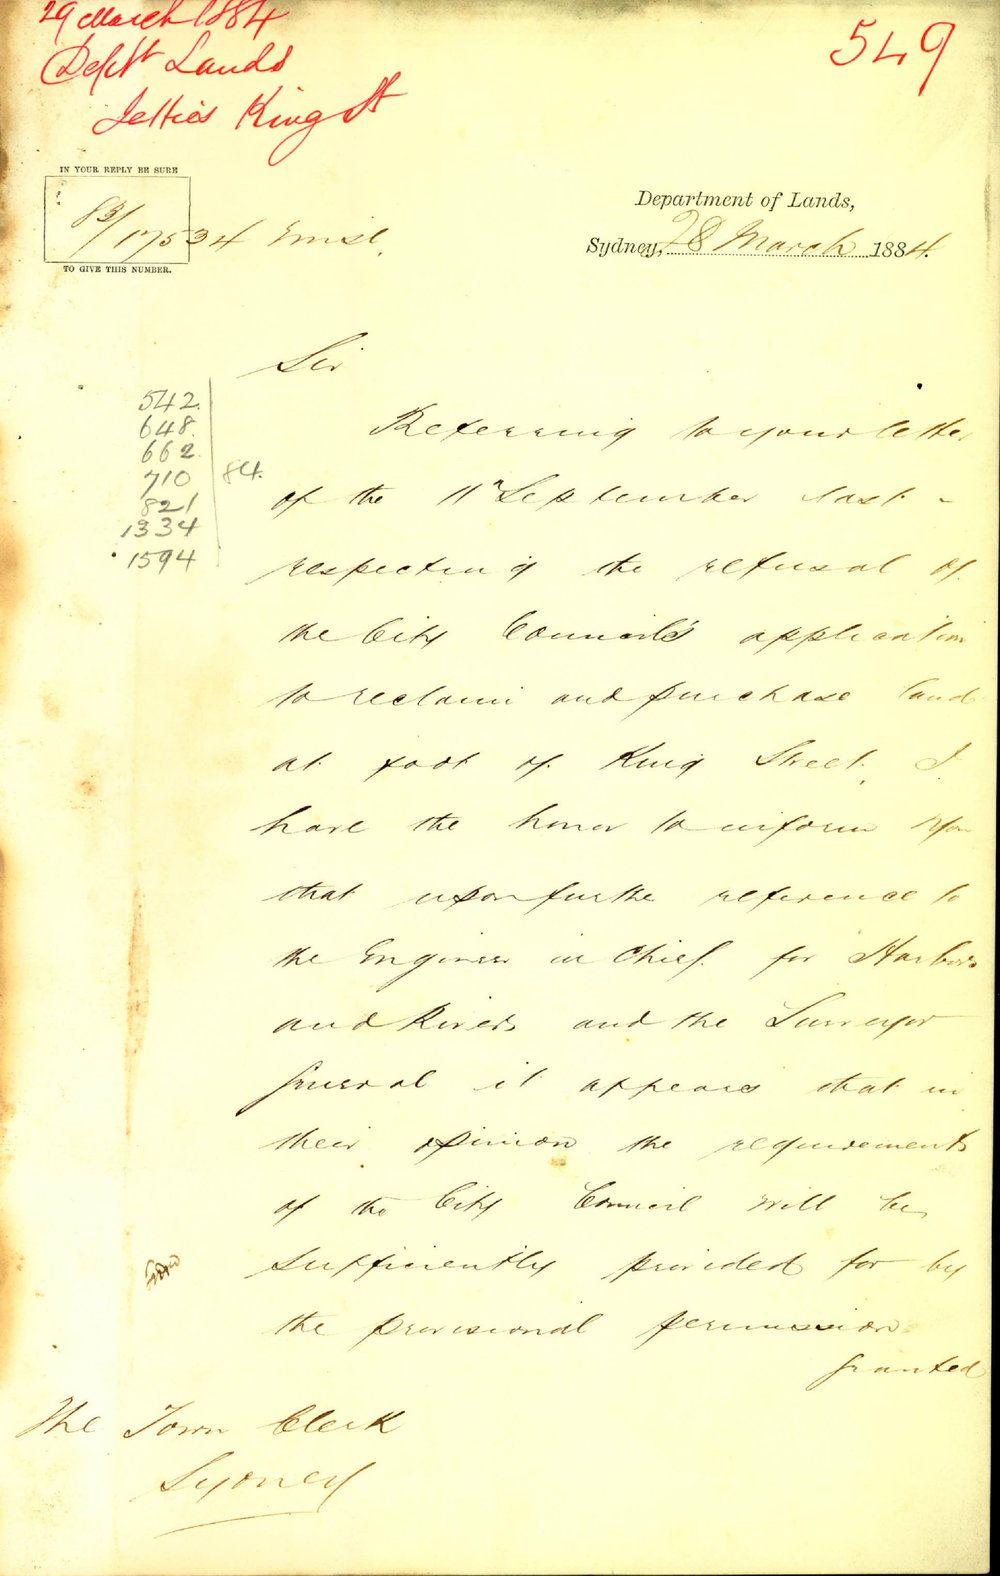 29 March 1884
Dept Lands
Jetties King St
549
IN YOUR REPLY BE SURE
83/17534 Misl.
TO GIVE THIS NUMBER.
Department of Lands,
Sydney, 28 March 1884.
Sir
542.
648.
662.
710
821
1334
1594
84.
Referring to your letter
of the 11th September last -
respecting the refusal of
the City Council's application
to reclaim and purchase land
at foot of King Street, I
have the honor to inform you
that upon further reference to
the Engineer in Chief for Harbors
and Rivers and the Surveyor
General it appears that in
their opinion the requirements
of the City Council will be
sufficiently provided for by
the provisional permission
granted
The Town Clerk
Sydney